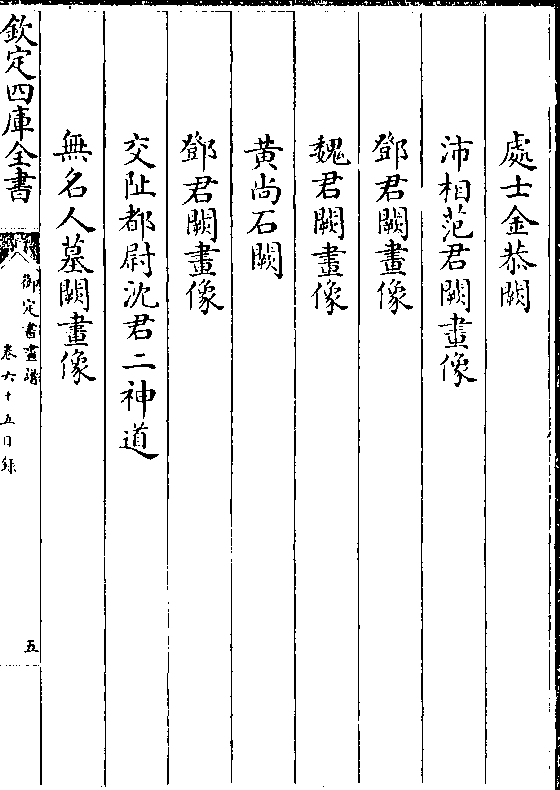 處士金恭闕
沛相范君闕畫像
鄧君闕畫像
魏君闕畫像
黄尚石闕
鄧君闕畫像
交阯都尉沈君二神道
無名人墓闕畫像
欽定四庫全書
御定書畫譜
卷六十五目録
五